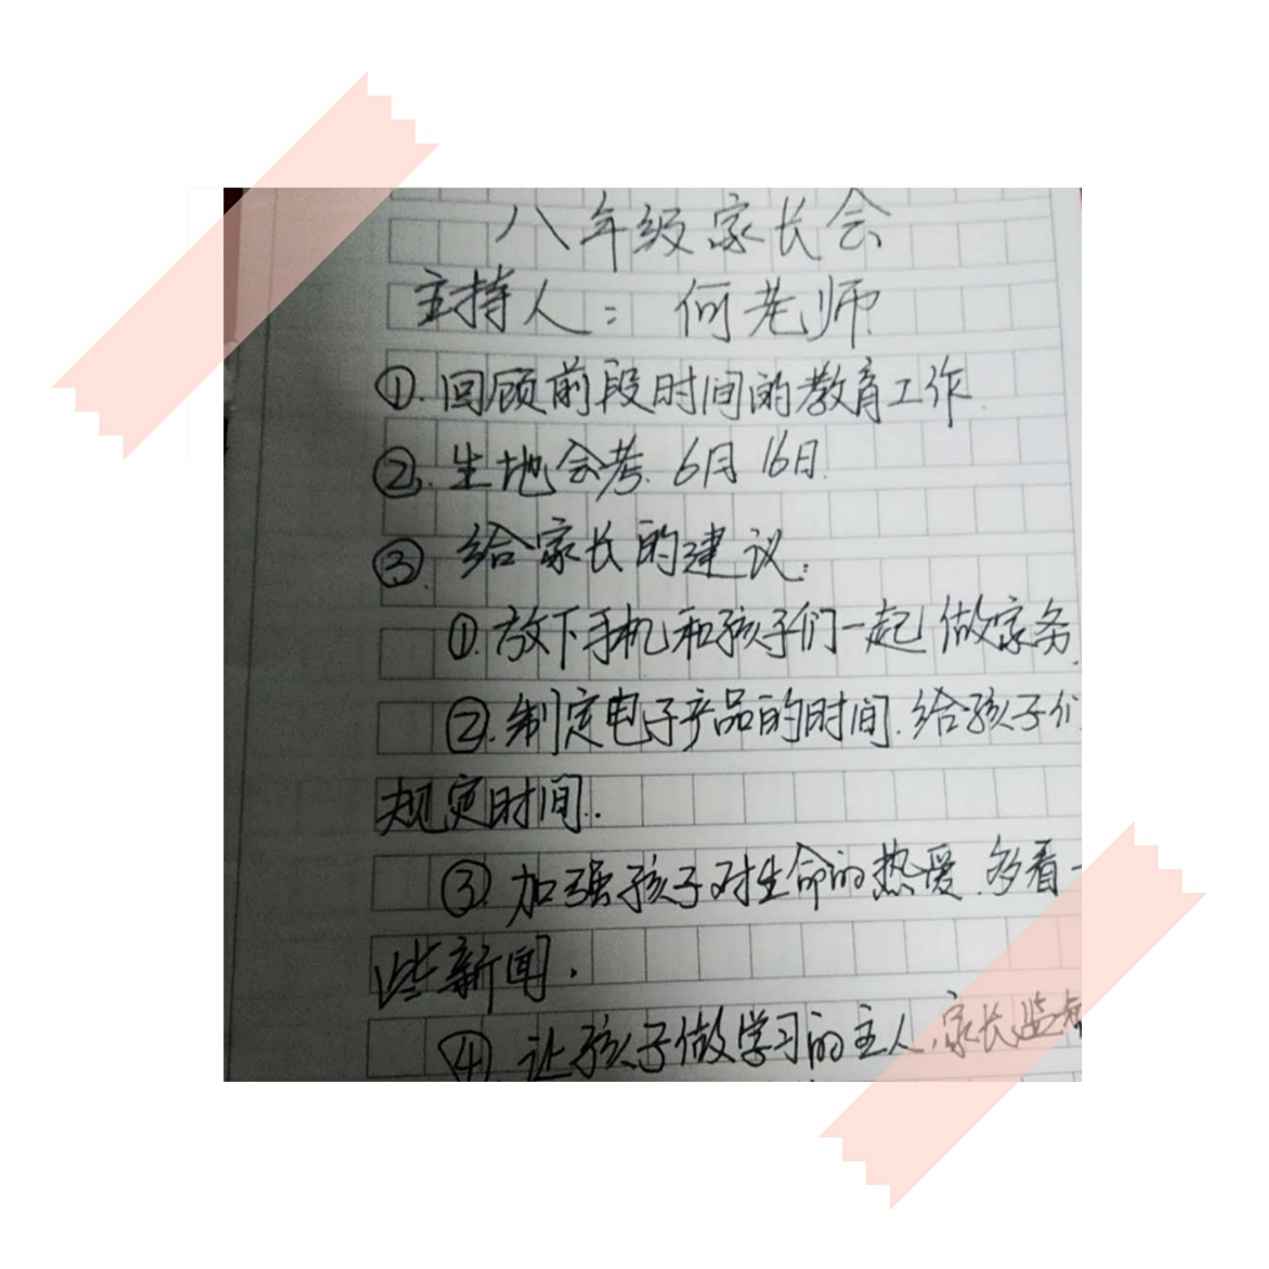 八年级家长会
主持人：何老师
①.回顾前段时间的教育工作.
②.生地会考.6月16日.
③.给家长的建议：
①.放下手机和孩子们一起做家务.
②.制定电子产品的时间.给孩子们
规定时间..
③.加强孩子对生命的热爱.多看一
些新闻.
④.让孩子做学习的主人.家长监督